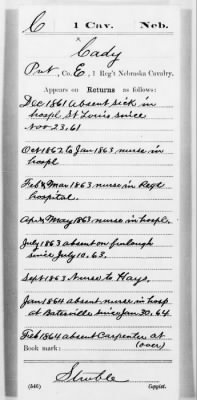 C 1 Cav. Neb.
Cady
Pvt, Co. E, 1 Reg't Nebraska Cavalry.
Appears on Returns as follows:
Dec 1861 absent sick in
hospl St Louis since
Nov 23, 61
Oct 1862 to Jan 1863 nurse in
hospl
Feb & Mar 1863 nurse in Regtl
hospital.
Apr & May 1863 nurse in hospl.
July 1863 absent on furlough
since July 10. 63.
Sept 1863 Nurse to Hays.
Jan 1864 absent nurse in hosp
at Batesville since Jan 30. 64
Feb 1864 absent Carpenter at
(over)
Book mark:
Struble
(546) Copyist.